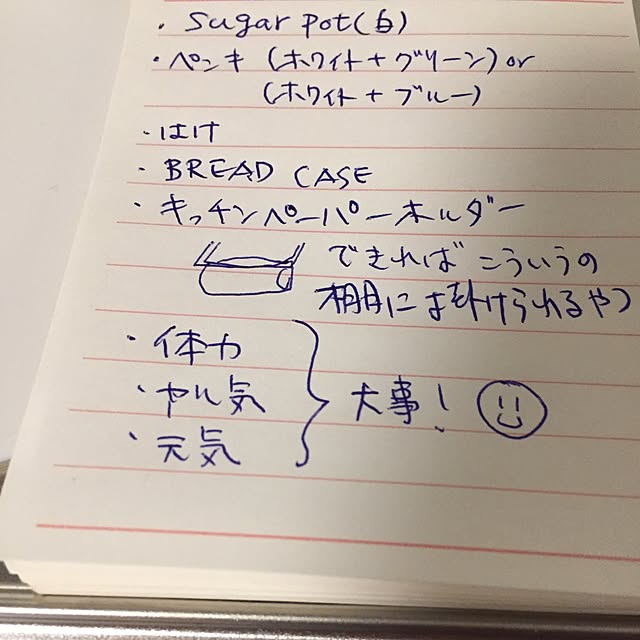 ・Sugar pot(白)
・ペンキ (ホワイト+グリーン) or
(ホワイト+ブルー)
・はけ
・BREAD CASE
・キッチンペーパーホルダー
できればこういうの
棚に掛けられるやつ
・体力
・ヤル気
・元気
大事!